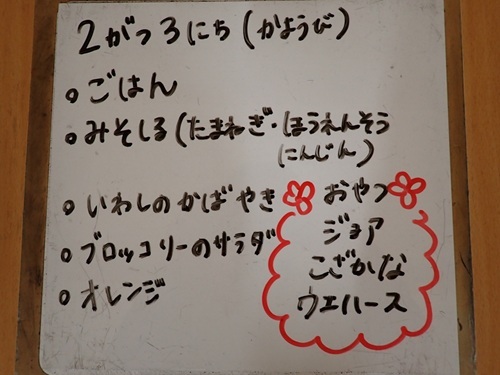 2がつ3にち(かようび)
ごはん
みそしる(たまねぎ・ほうれんそう
にんじん)
いわしのかばやき
ブロッコリーのサラダ
オレンジ
おやつ
ジョア
こざかな
ウエハース